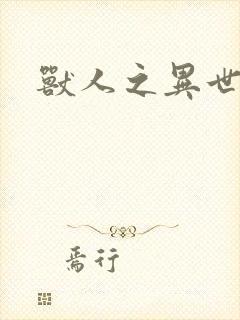 獸人之異世
焉行